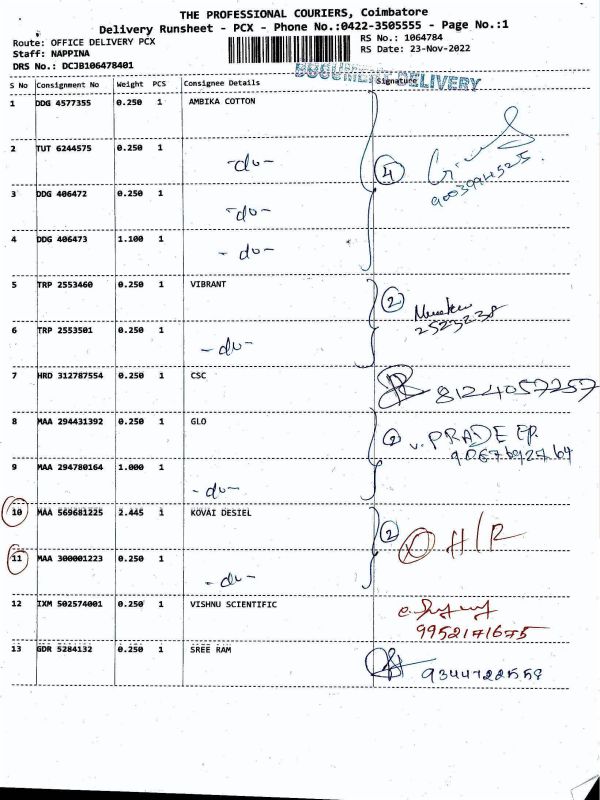 THE PROFESSIONAL COURIERS, Coimbatore
Delivery Runsheet - PCX - Phone No.:0422-3505555 - Page No.:1
Route: OFFICE DELIVERY PCX
RS No.: 1064784
Staff: NAPPINA
RS Date: 23-Nov-2022
DRS No.: DCJB106478401
DOCUMENT DELIVERY
S No Consignment No Weight PCS Consignee Details Signature
1 DDG 4577355 0.250 1 AMBIKA COTTON
2 TUT 6244575 0.250 1 -do- 4
3 DDG 406472 0.250 1 -do-
4 DDG 406473 1.100 1 -do-
5 TRP 2553460 0.250 1 VIBRANT 2
6 TRP 2553501 0.250 1 -do-
7 HRD 312787554 0.250 1 CSC 8124057257
8 MAA 294431392 0.250 1 GLO 2 V. PRADEEP.
9 MAA 294780164 1.000 1 -do-
10 MAA 569681225 2.445 1 KOVAI DESIEL 2
11 MAA 300001223 0.250 1 -do-
12 IXM 502574001 0.250 1 VISHNU SCIENTIFIC
9952171675
13 GDR 5284132 0.250 1 SREE RAM 9344722558